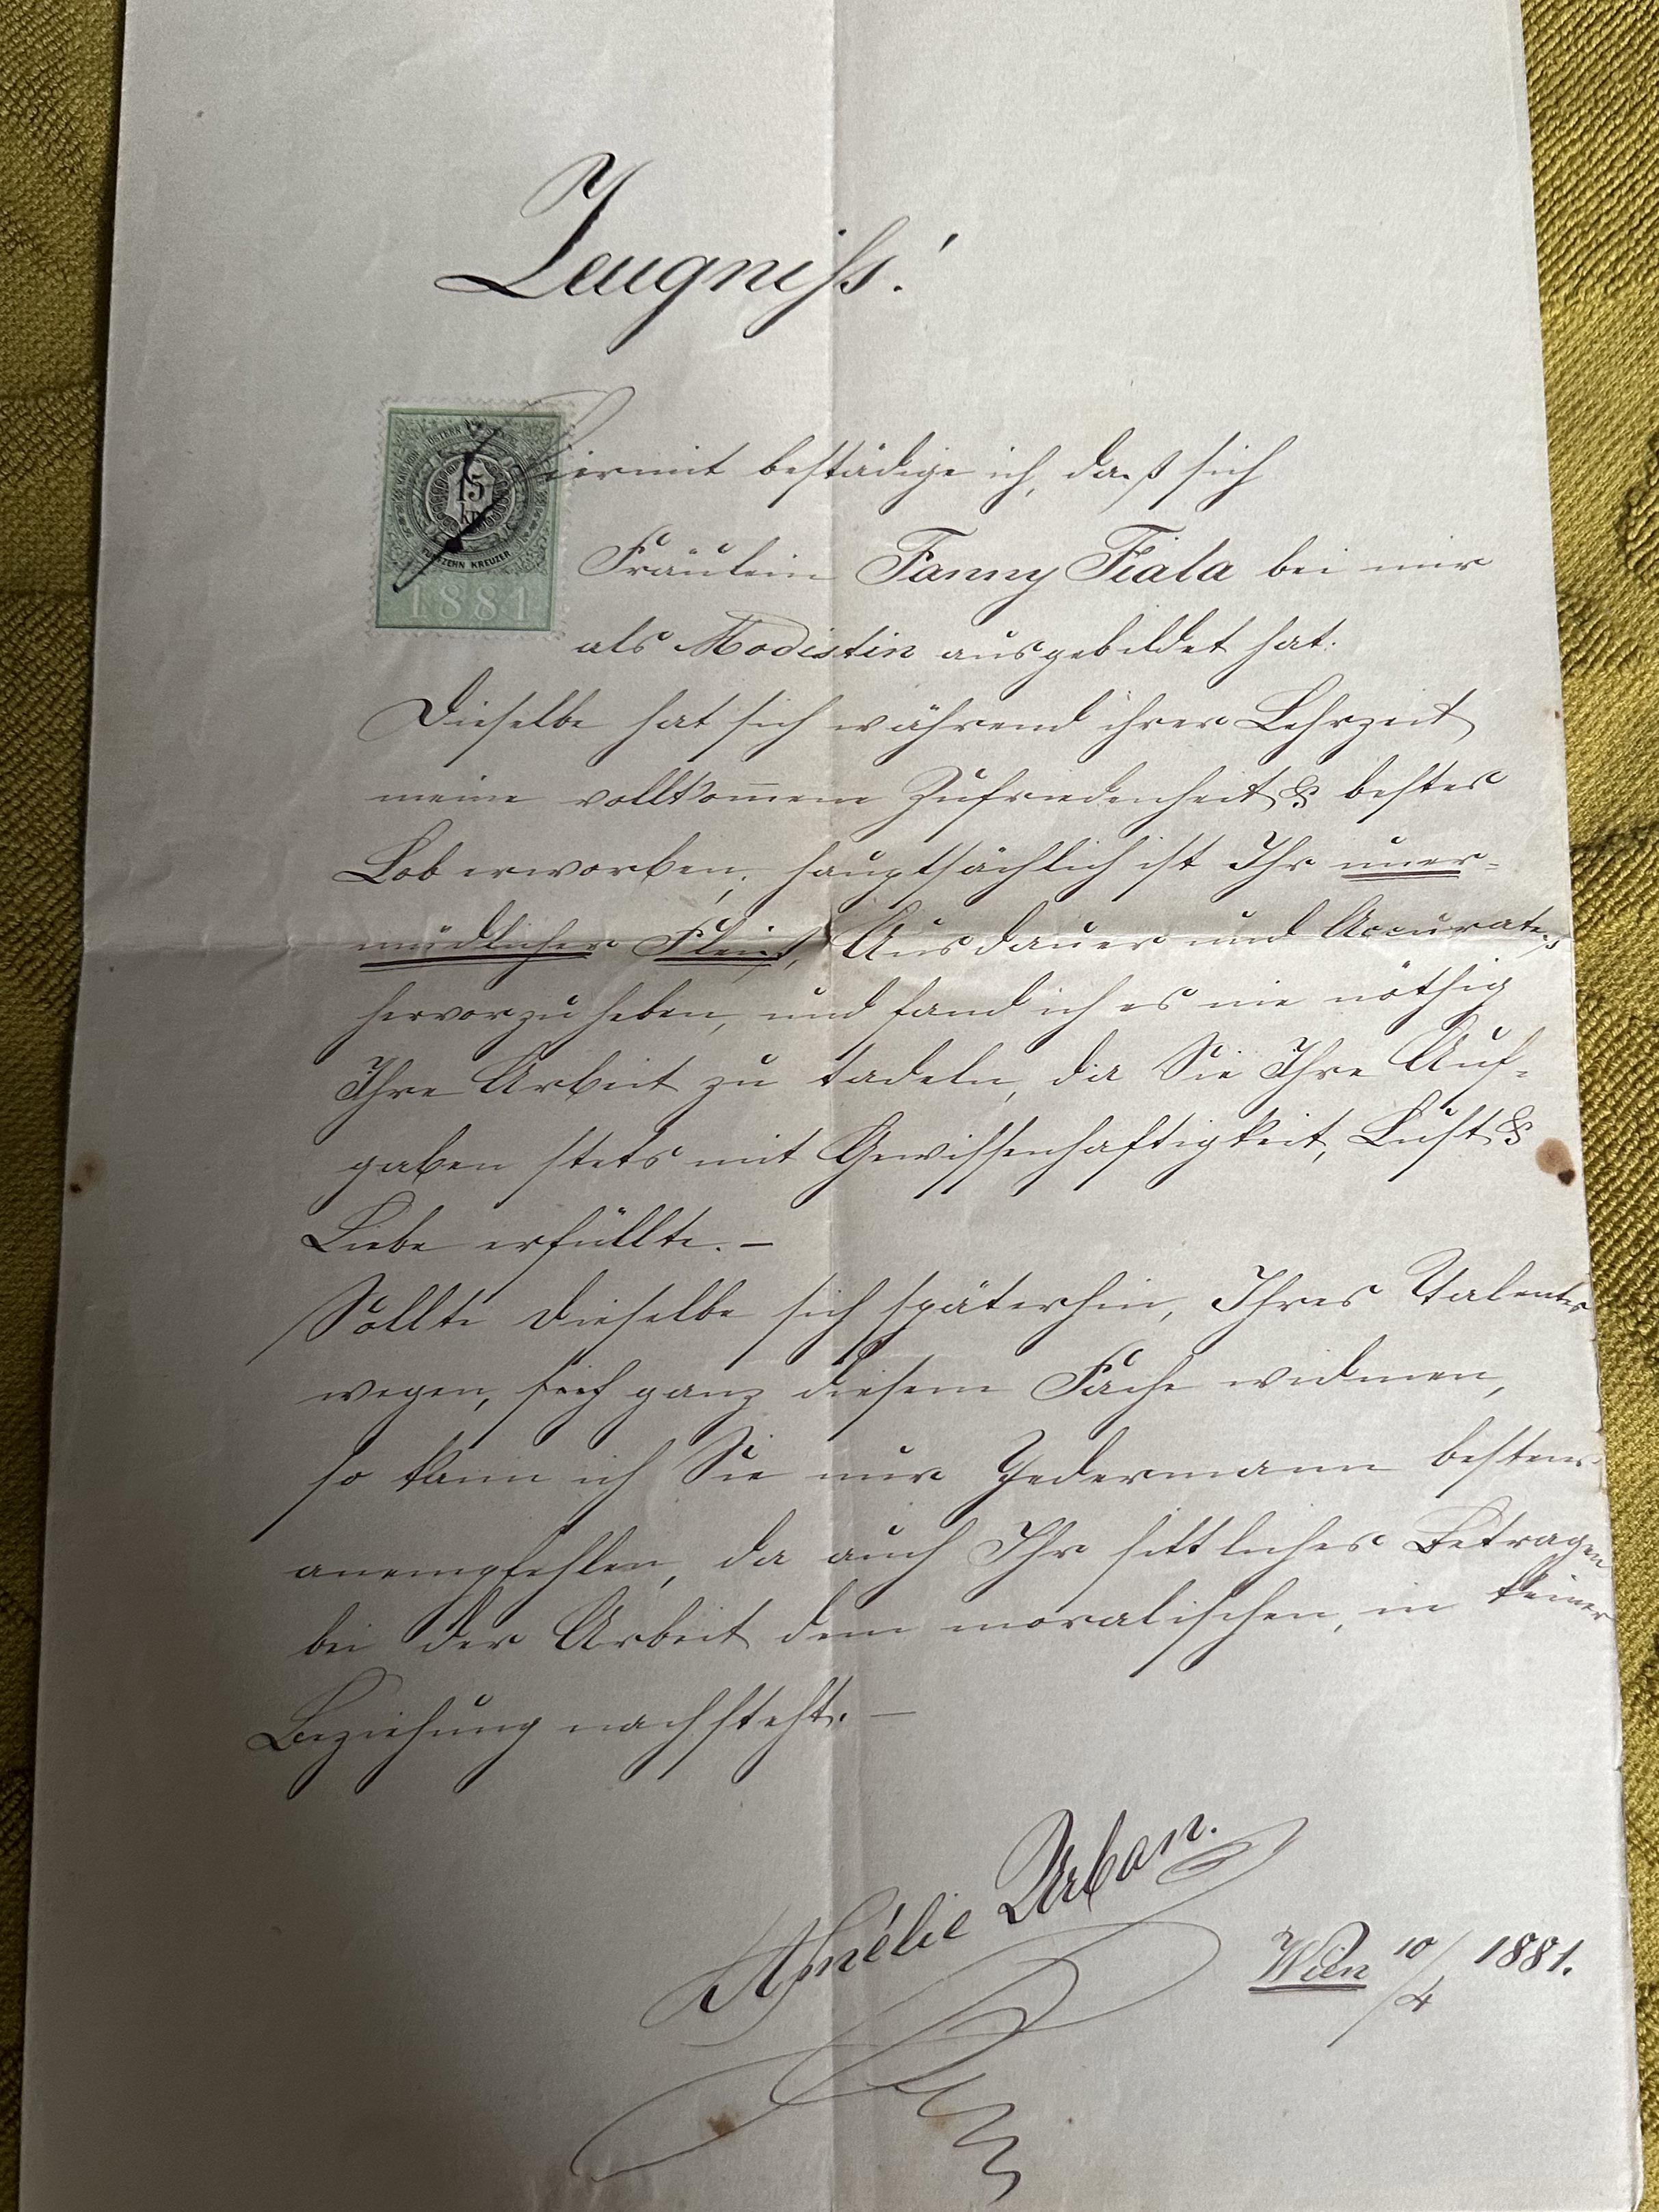 Zeugniss!
ÖSTERR.
15
kr.
FÜNFZEHN KREUZER
1881
Hiermit bestädige ich, daß sich
Fräulein Fanny Fiala bei mir
als Modistin ausgebildet hat.
Dieselbe hat sich während ihrer Lehrzeit
meine vollkom̅ene Zufriedenheit & bestes
Lob erworben, hauptsächlich ist Ihr uner-
müdlicher Fleiß, Ausdauer und Accurates
hervorzuheben, und fand ich es nie nöthig
Ihre Arbeit zu tadeln, da Sie Ihre Auf-
gaben stets mit Gewissenhaftigkeit, Lust &
Liebe erfüllte. –
Sollte dieselbe sich späterhin, Ihres Talentes
wegen, sich ganz diesem Fache widmen,
so kann ich Sie nur Jedermann bestens
anempfehlen, da auch Ihr sittliches Betragen
bei der Arbeit dem moralischen, in keiner
Beziehung nachsteht. –
Amélie Urban.
Wien 10/4 1881.